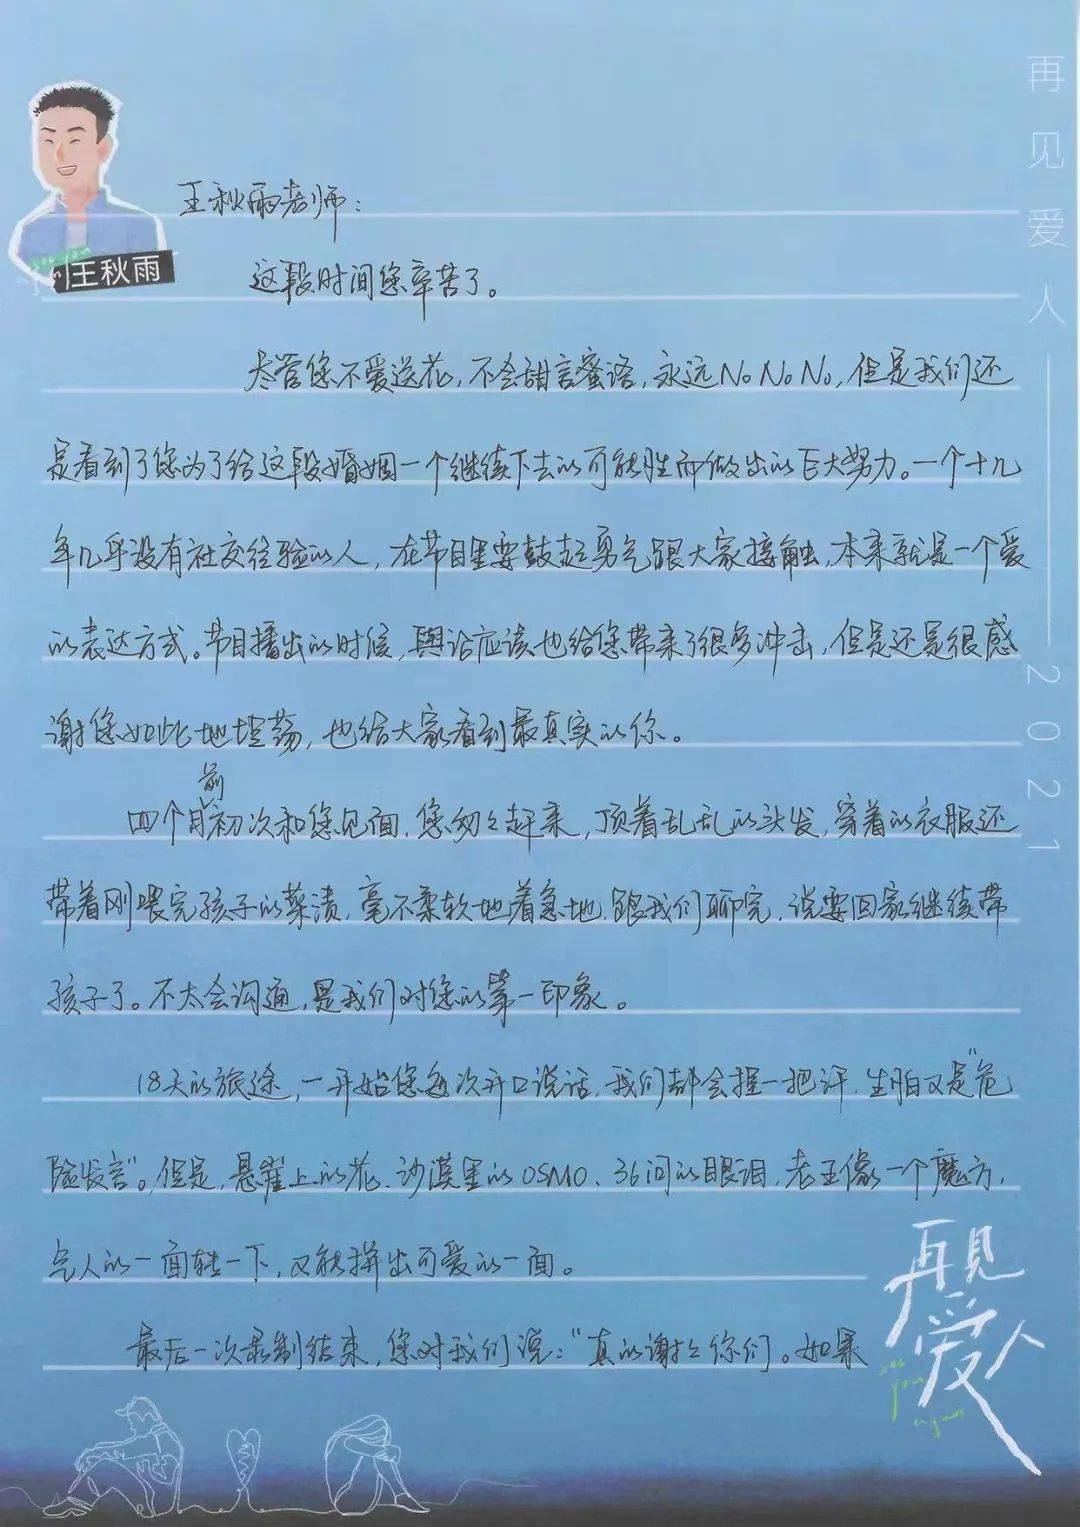 再见爱人——2021
王秋雨
王秋雨老师：
这段时间您辛苦了。
尽管您不爱送花，不会甜言蜜语，永远No No No，但是我们还
是看到了您为了给这段婚姻一个继续下去的可能性而做出的巨大努力。一个十几
年几乎没有社交经验的人，在节目里要鼓起勇气跟大家接触，本来就是一个爱
的表达方式。节目播出的时候，舆论应该也给您带来了很多冲击，但是还是很感
谢您如此地坦荡，也给大家看到最真实的你。
四个月前初次和您见面，您匆匆赶来，顶着乱乱的头发，穿着的衣服还
带着刚喂完孩子的菜渍，毫不柔软地着急地，跟我们聊完，说要回家继续带
孩子了。不太会沟通，是我们对您的第一印象。
18天的旅途，一开始您每次开口说话，我们都会捏一把汗，生怕又是“危
险发言”。但是，悬崖上的花、沙漠里的OSMO、36问的眼泪，老王像一个魔方，
气人的一面转一下，又能拼出可爱的一面。
最后一次录制结束，您对我们说：“真的谢谢你们。如果
再见爱人
see you again